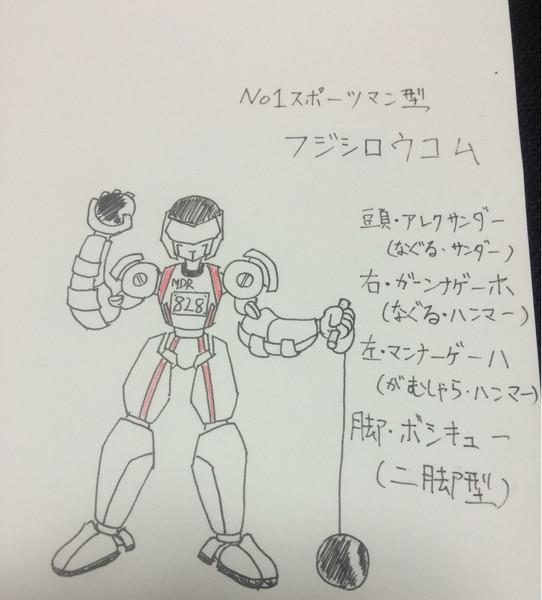 No1スポーツマン型
フジシロウコム
頭・アレクサンダー
(なぐる・サンダー)
右・ガーンナゲーホ
(なぐる・ハンマー)
左・マンナーゲーハ
(がむしゃら・ハンマー)
脚・ボシキュー
(二脚型)
MDR
828